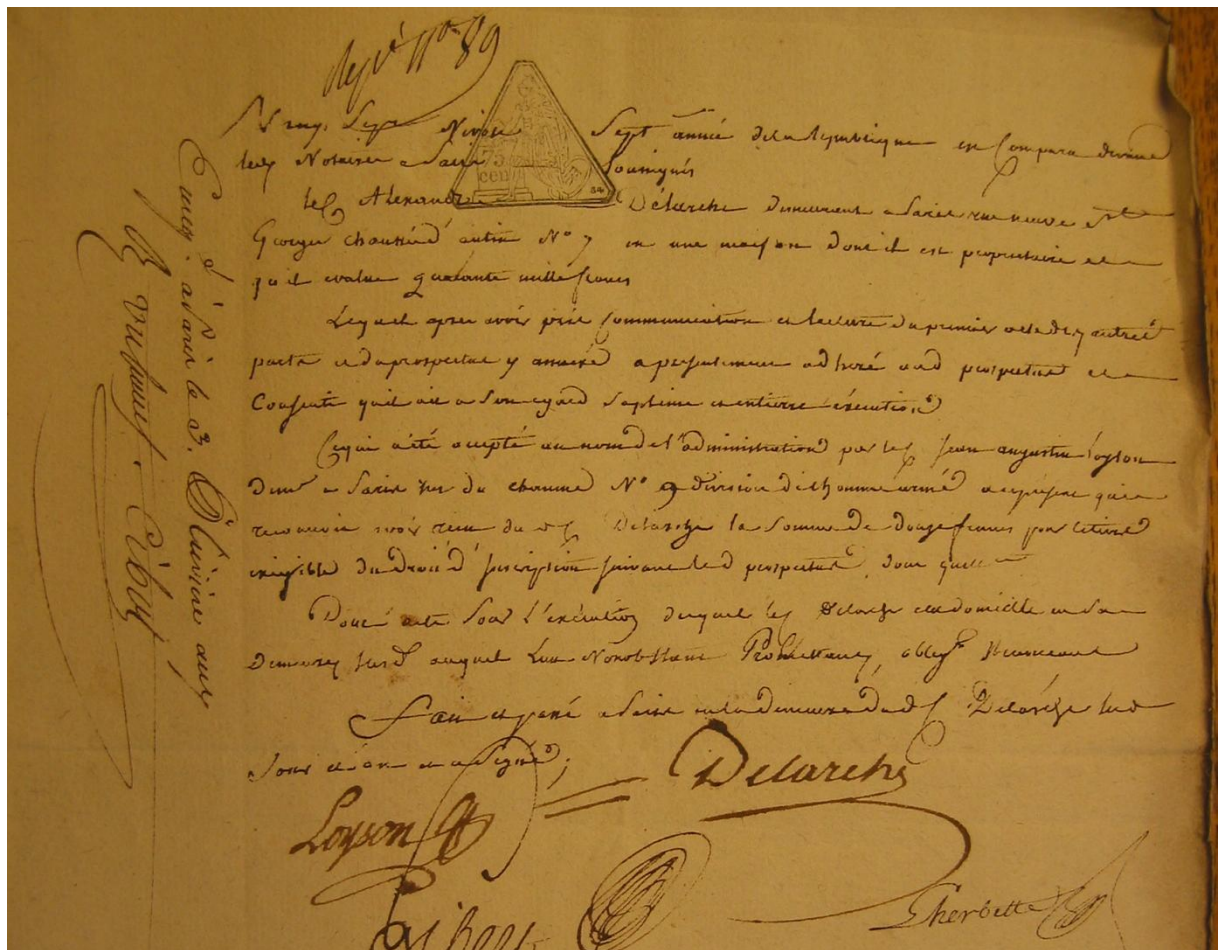 Nivose Sept année de la Republique en Compara devant
les Notaires a Paris Soussignés
75
cen
le C. Alexandre Delarche demeurant a Paris rue neuve St
Georges chaussée d'antin N° 7 en une maison dont il est proprietaire et
qu'il evalue quarante mille francs
Lequel apres avoir pris Communication et lecture du premier acte des autres
parts et du prospectus y annexé a presentement adheré aud prospectus et
Consenti qu'il ait a son egard sa pleine et entierre execution
Ce qui a été accepté au nom de l'administration par le C. Jean augustin Loyson
demt a Paris rue du chaume N° 9 division de l'homme armé a ce present qui
reconnoit avoir recu du d C. Delarche la somme de douze francs pour
exigible du droit d'Inscription suivant led prospectus, dont quitt
Dont acte Pour l'execution duquel le C. Delarche elu domicile en sa
demeure susd auquel Lieu Nonobstant Promettant, obligt Renonceant
Fait et passé a Paris en la demeure du d C. Delarche les d
jour et an et a Signé,
Delarche
Loyson
Gherbette
a Paris le 3. Pluviose an 7